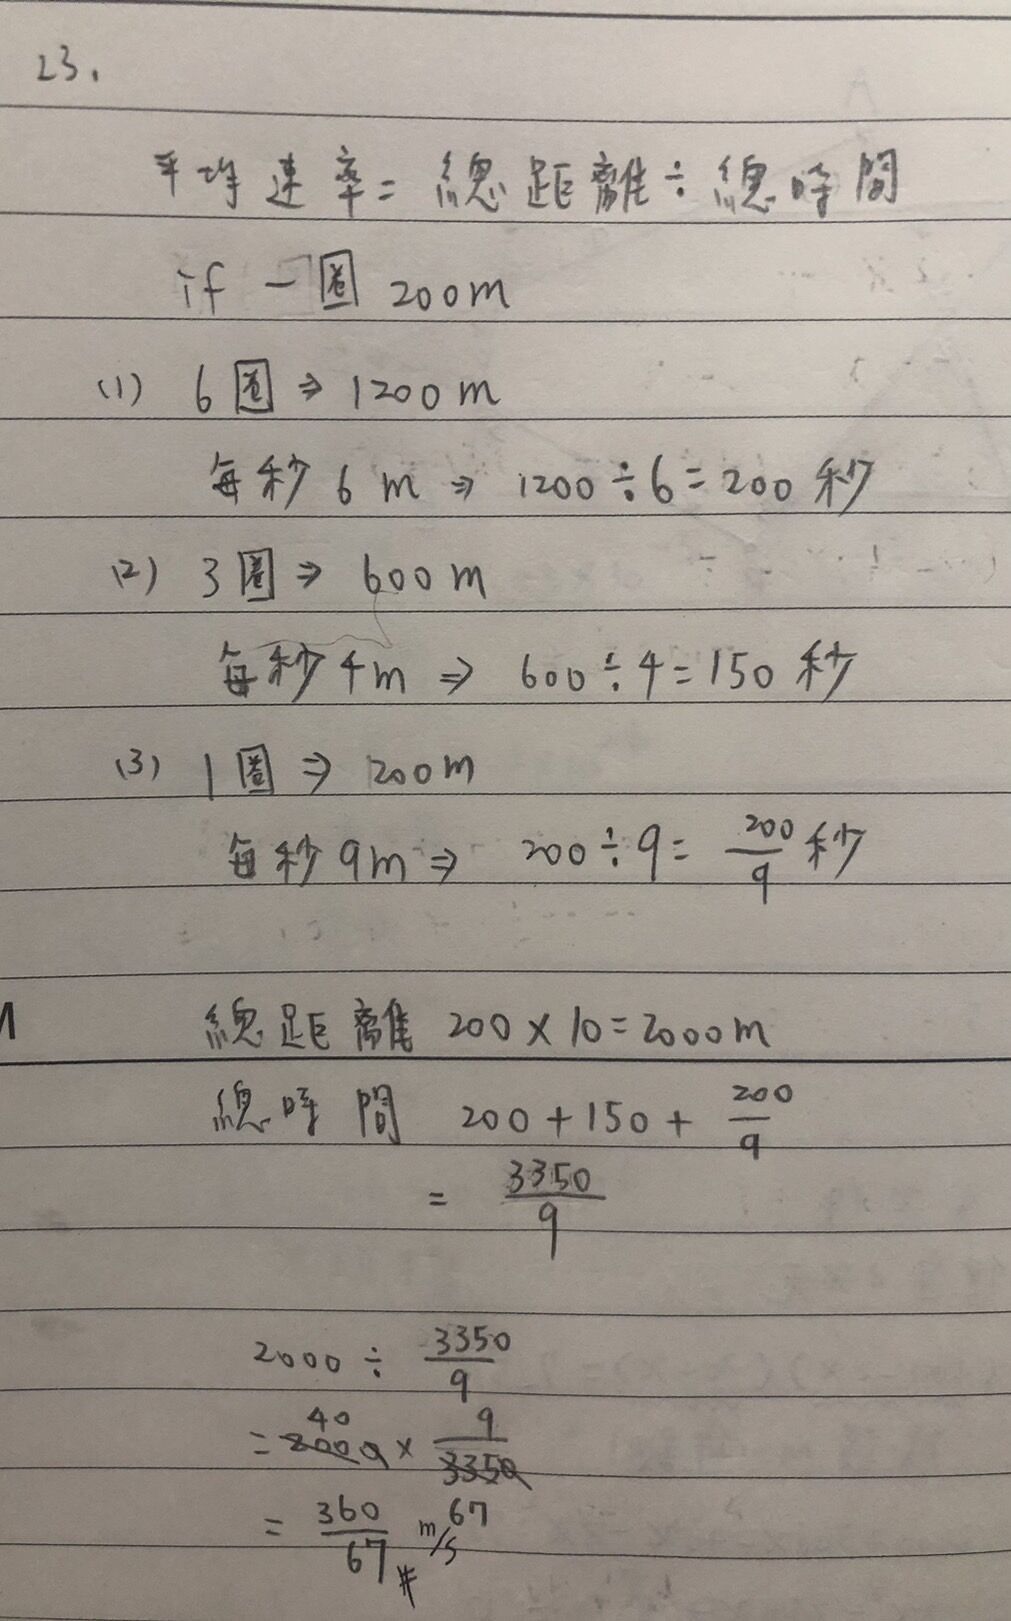 23.
平均速率=總距離÷總時間
if 一圈 200m
(1) 6圈⇒1200m
每秒6m⇒ 1200÷6=200秒
(2) 3圈⇒ 600m
每秒4m⇒ 600÷4=150秒
(3) 1圈⇒ 200m
每秒9m⇒ 200÷9= 200/9 秒
總距離 200×10=2000m
總時間 200+150+ 200/9
= 3350/9
2000÷ 3350/9
= 2000 40 × 9/3350 67
= 360/67 m/s #